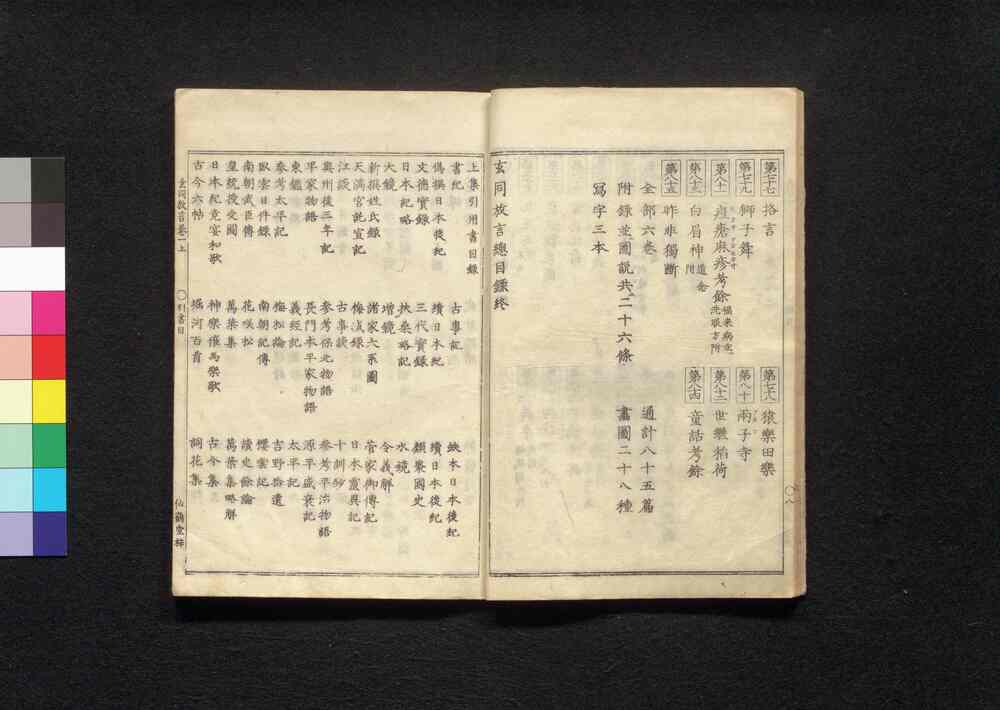 第七十七 挌言
第七十八 猿樂田樂
第七十九 獅子舞
第八十 兩子寺
第八十一 痘瘡麻疹考餘
第八十二 世繼稲荷
第八十三 白眉神 道念附
第八十四 童話考餘
第八十五 昨非獨斷
全部六巻 通計八十五篇
附録並圖説共二十六條 畫圖二十八種
寫字三本
玄同放言總目録終
上集引用書目録
書紀 古事記 缺本日本後紀
偽撰日本後紀 續日本紀 續日本後紀
文德實録 三代實録 類聚國史
日本紀略 扶桑略記 水鏡
大鏡 増鏡 令義解
新撰姓氏録 諸家大系圖 菅家御傳記
天滿宮託宣記 梅城録 日本靈異記
江談 古事談 十訓抄
奥州後三年記 參考保元物語 參考平治物語
平家物語 長門本平家物語 源平盛衰記
東鑑 義經記 太平記
參考太平記 梅松論 吉野拾遺
臥雲日件録 南朝記傳 櫻雲記
南朝武臣傳 花咲松 讀史餘論
皇統授受圖 萬葉集 萬葉集略解
日本紀竟宴和歌 神樂催馬樂歌 古今集
古今六帖 堀河百首 詞花集
玄同放言巻一上 ○引書目 仙鶴堂梓